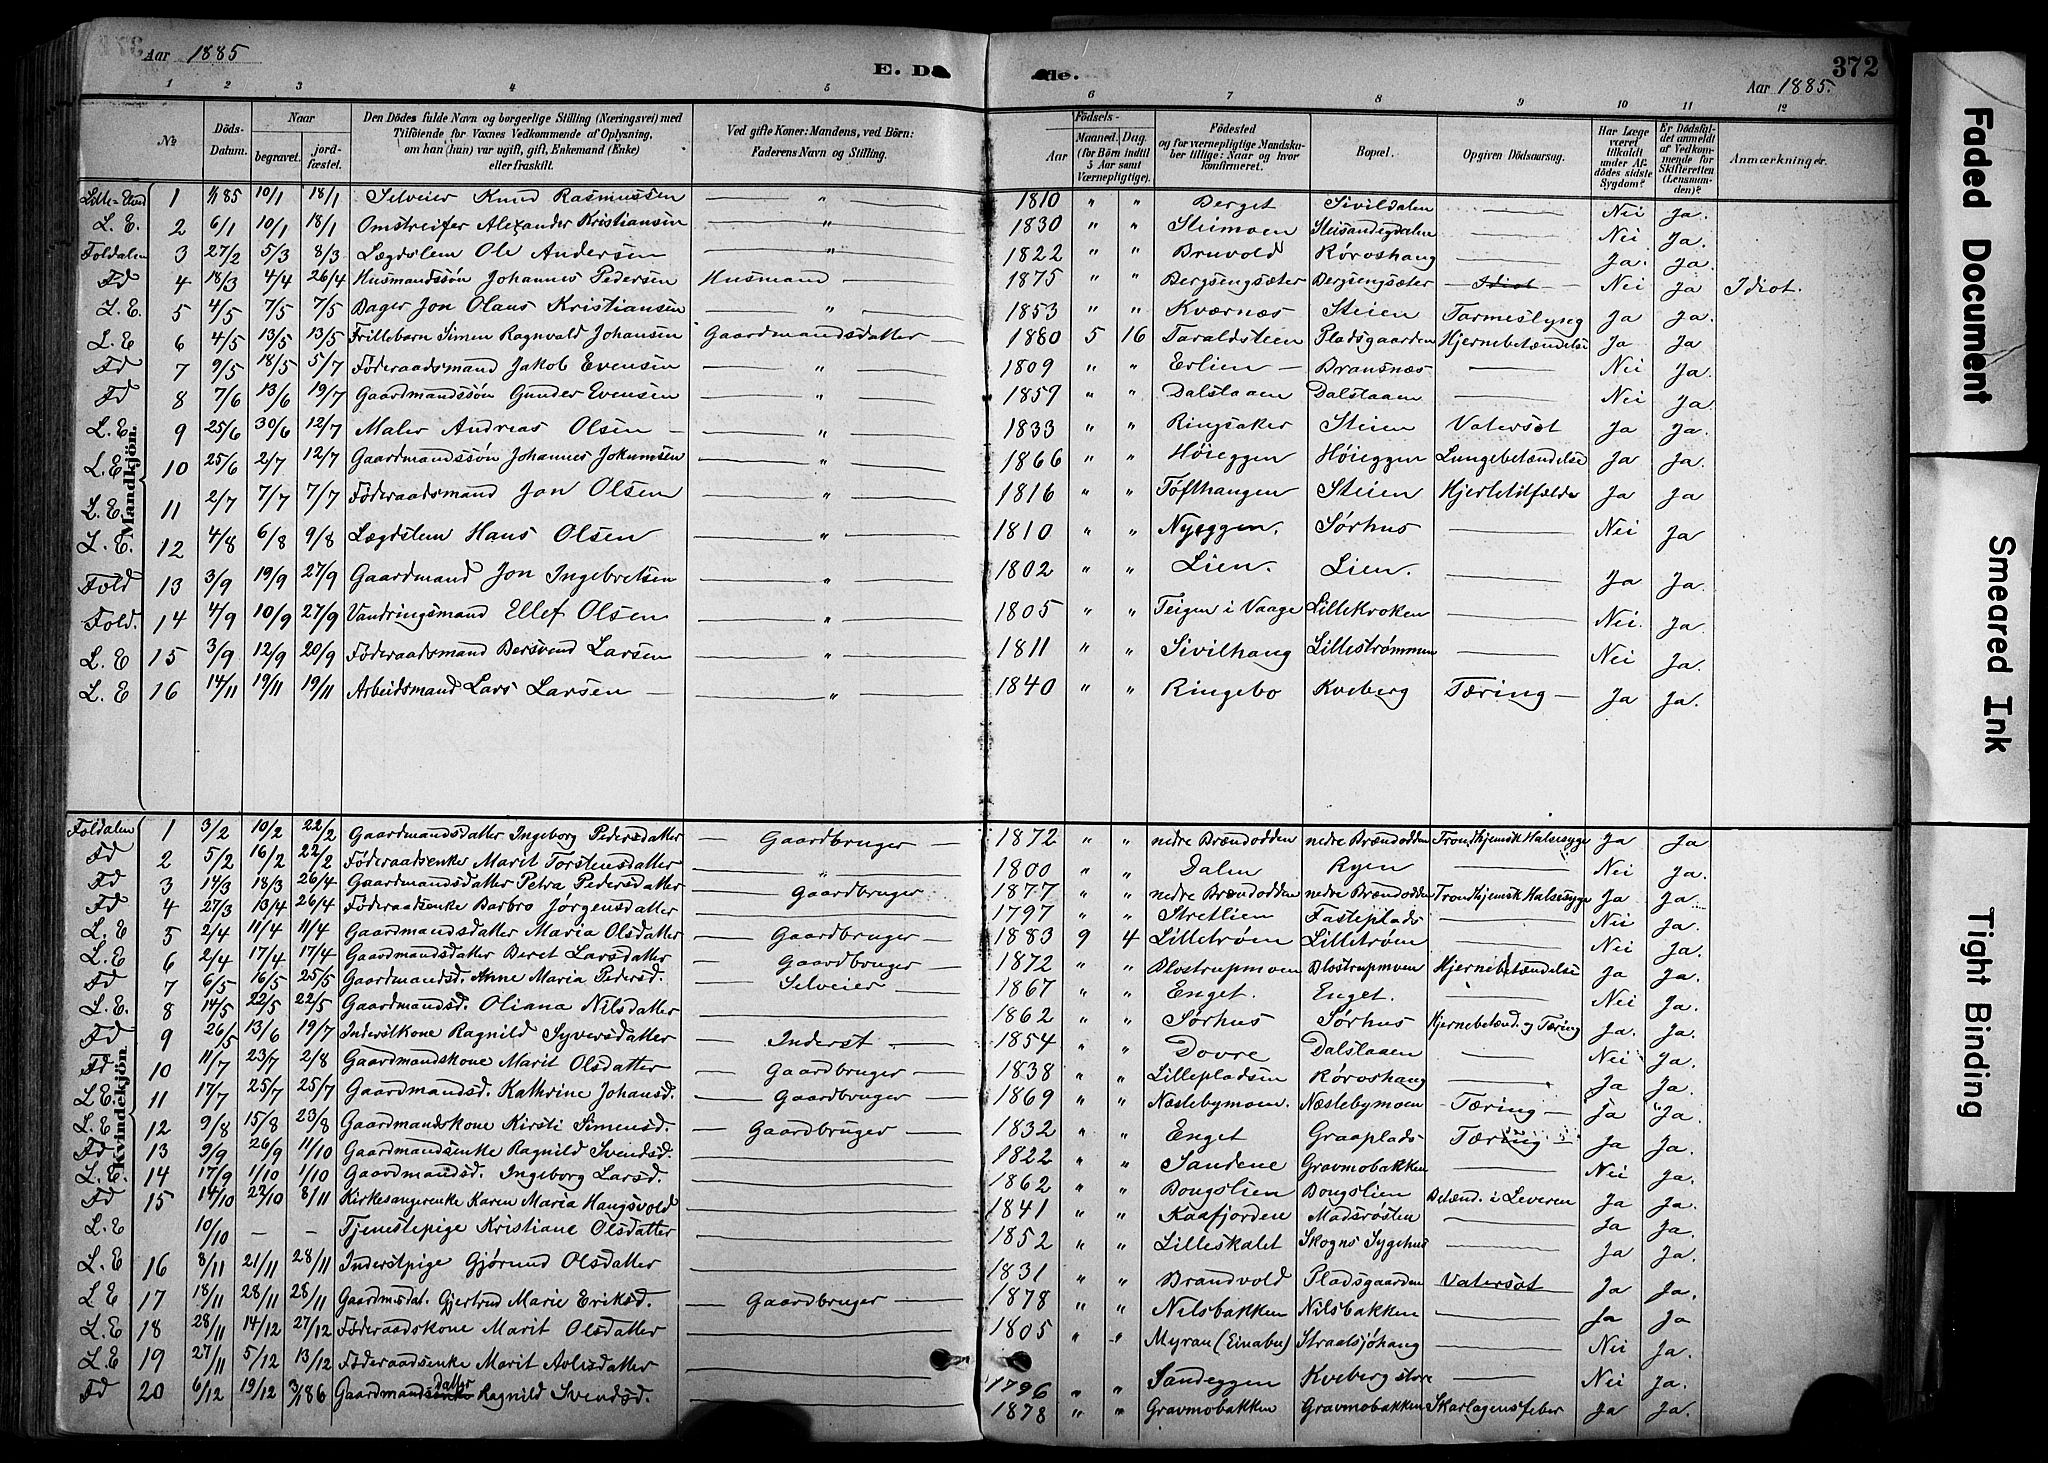 Aar 1885
E. Dø
de.
372
Aar 1885.
1 2 3 4 5 6 7 8 9 10 11 12
№
Døds-Datum.
Naar begravet. jordfæstet.
Den Dødes fulde Navn og borgerlige Stilling (Næringsvei) med Tilføiende for Voxnes Vedkommende af Oplysning, om han (hun) var ugift, gift, Enkemand (Enke) eller fraskilt.
Ved gifte Koner: Mandens, ved Børn: Faderens Navn og Stilling.
Fødsels-
Aar
Maaned. Dag. (for Børn indtil 5 Aar samt Værnepligtige).
Fødested og for værnepligtige Mandskaber tillige: Naar og hvor konfirmeret.
Bopæl.
Opgiven Dødsaarsag.
Har Læge været tilkaldt under Afdødes sidste Sygdom?
Er Dødsfaldet anmeldt af Vedkommende for Skifteretten (Lensmanden)?
Anmærkninger.
Mandkjön.
Lille-Elved 1 1/1 85 10/1 18/1 Selveier Knud Rasmussen — " — 1810 " " Berget Sivildalen — Nei Ja.
L. E. 2 6/1 10/1 18/1 Omstreifer Alexander Kristiansen — " — 1830 " " Steimoen — Nei Ja.
Foldalen 3 27/2 5/3 8/3 Lægdslem Ole Andersen — " — 1822 " " Bruvold Røroshang — Ja. Ja.
Fd 4 18/3 4/4 26/4 Husmandssøn Johannes Pedersen Husmand — 1875 " " Bergsengsæter Bergsengsæter Idiot Nei Ja Idiot.
L. E. 5 4/5 7/5 7/5 Bager Jon Olaus Kristiansen — " — 1853 " " Kværnæs Steien Tarmeslyng Ja Ja.
L. E 6 4/5 13/5 13/5 Frillebarn Simen Ragnvald Johansen Gaardmandsdatter — 1880 5 16 Taraldsteien Pladsgaarden Hjernebetændelse Ja Ja
Fd 7 9/5 18/5 5/7 Føderaadsmand Jakob Evensen — " — 1809 " " Erlien — Bransnæs — Nei Ja.
Fd 8 7/6 13/6 19/7 Gaardmandssøn Gunder Evensen — " — 1859 " " Dalslaaen Dalslaaen — Nei Ja.
L. E. 9 25/6 30/6 12/7 Maler Andreas Olsen — " — 1833 " " Ringsaker Steien Vatersot Ja Ja.
L. E 10 25/6 2/7 12/7 Gaardmandssøn Johannes Jokumsen — " — 1866 " " Høieggen Høieggen Lungebetændelse Ja Ja
L. E 11 2/7 7/7 7/7 Føderaadsmand Jon Olsen — " — 1816 " " Tøfthaugen Steien Hjertetilfælde Ja Ja
L. E. 12 4/8 6/8 9/8 Lægdslem Hans Olsen — " — 1810 " " Nyeggen. Sørhus — Nei Ja
Fold 13 3/9 19/9 27/9 Gaardmand Jon Ingebretsen — " — 1802 " " Lien. Lien. — Ja Ja.
Fold. 14 4/9 10/9 27/9 Vandringsmand Ellef Olsen — " — 1805 " " Teigen i Vaage Lillekroken — Nei. Ja.
L. E 15 3/9 12/9 20/9 Føderaadsmand Bersvend Larsen — " — 1811 " " Sivilhaug Lillestrømmen — Nei Ja.
L. E 16 14/11 19/11 19/11 Arbeidsmand Lars Larsen — " — 1840 " " Ringebo Kveberg Tæring — Ja Ja.
Kvindekjön.
Foldalen 1 3/2 10/2 22/2 Gaardmandsdatter Ingeborg Pedersdatter — Gaardbruger — 1872 " " nedre Brændodden nedre Brændodden Trondhjemsk Halssyge Ja Ja
Fd 2 5/2 16/2 22/2 Føderaadsenke Marit Torstensdatter — " — 1800 " " Dalen Ryen — Nei Ja.
Fd 3 14/3 18/3 26/4 Gaardmandsdatter Petra Pedersdatter — Gaardbruger 1877 " " nedre Brændodden nedre Brændodden Trondhjemsk Halssyge Ja Ja.
Fd 4 27/3 13/4 26/4 Føderaadsenke Barbro Jørgensdatter — 1797 " " Stretlien Fasteplads — Nei Ja
L. E 5 2/4 11/4 11/4 Gaardmandsdatter Maria Olsdatter — Gaardbruger — 1883 9 4 Lilletrøen Lilletrøen — Nei Ja.
L. E 6 2/4 17/4 17/4 Gaardmandsdatter Beret Larsdatter — Gaardbruger — 1872 " " Blostrupmoen Blostrupmoen Hjernebetændelse Ja Ja.
Fd 7 6/5 16/5 25/5 Gaardmandsd. Anne Maria Pedersd. — Selveier — 1867 " " Enget. Enget. — Nei Ja
L. E. 8 14/5 22/5 22/5 Gaardmandsd. Oliana Nilsdatter — 1862 " Sørhus Sørhus Hjernebetænd. og Tæring Ja. Ja.
Fd 9 26/5 13/6 19/7 Inderstkone Ragnild Syversdatter — Inderst — 1854 " " Dovre Dalslaaen — Nei Ja.
Fd 10 11/7 23/7 2/8 Gaardmandskone Marit Olsdatter — Gaardbruger — 1838 " " Lillepladsen Røroshang — Ja Ja.
L. E. 11 17/7 25/7 25/7 Gaardmandsd. Kathrine Johansd. — Gaardbruger — 1869 " " Næstebymoen. Næstebymoen Tæring — Ja Ja.
L. E 12 9/8 15/8 23/8 Gaardmandskone Kirsti Simensd. — Gaardbruger — 1832 " Enget Graaplads Tæring Ja Ja.
Fd 13 9/9 26/9 11/10 Gaardmandsenke Ragnild Svendsd. — 1822 " " Sandene Gravmobakken — Nei Ja.
L. E. 14 17/9 1/10 1/10 Gaardmandsd. Ingeborg Larsd. — 1862 " " Bongslien Bongslien Betænd. i Leveren Ja Ja.
Fd 15 14/10 22/10 8/11 Kirkesangerenke Karen Maria Haugsvold — 1841 " " Kaafjorden Madsrøsten — Ja Ja.
L. E 10/10 — — Tjenestepige Kristiane Olsdatter — 1852 " " Lilleskalet Skogns Sygehus — Ja Ja.
L. E 16 8/11 21/11 28/11 Inderstpige Gjørund Olsdatter — 1831 " " Brandvold Pladsgaarden Vatersot Ja Ja.
L E 17 18/11 28/11 28/11 Gaardmsdat. Gjertrud Marie Eriksd. — Gaardbruger — 1878 " " Nilsbakken Nilsbakken — Ja Ja
L. E 18 28/11 14/12 27/12 Føderaadskone Marit Olsdatter — 1805 " " Myran (Einabu) Straalsjøhaug — Nei Ja.
L. E 19 27/11 5/12 13/12 Føderaadsenke Marit — 1796 " " Sandeggen Kveberg store — Nei Ja.
Fd 20 6/12 19/12 3/1 86 Gaardmandsdatter Ragnild Svendsd. — 1878 " " Gravmobakken Gravmobakken Skarlagensfeber Ja Ja.
Faded Document
Smeared Ink
Tight Binding